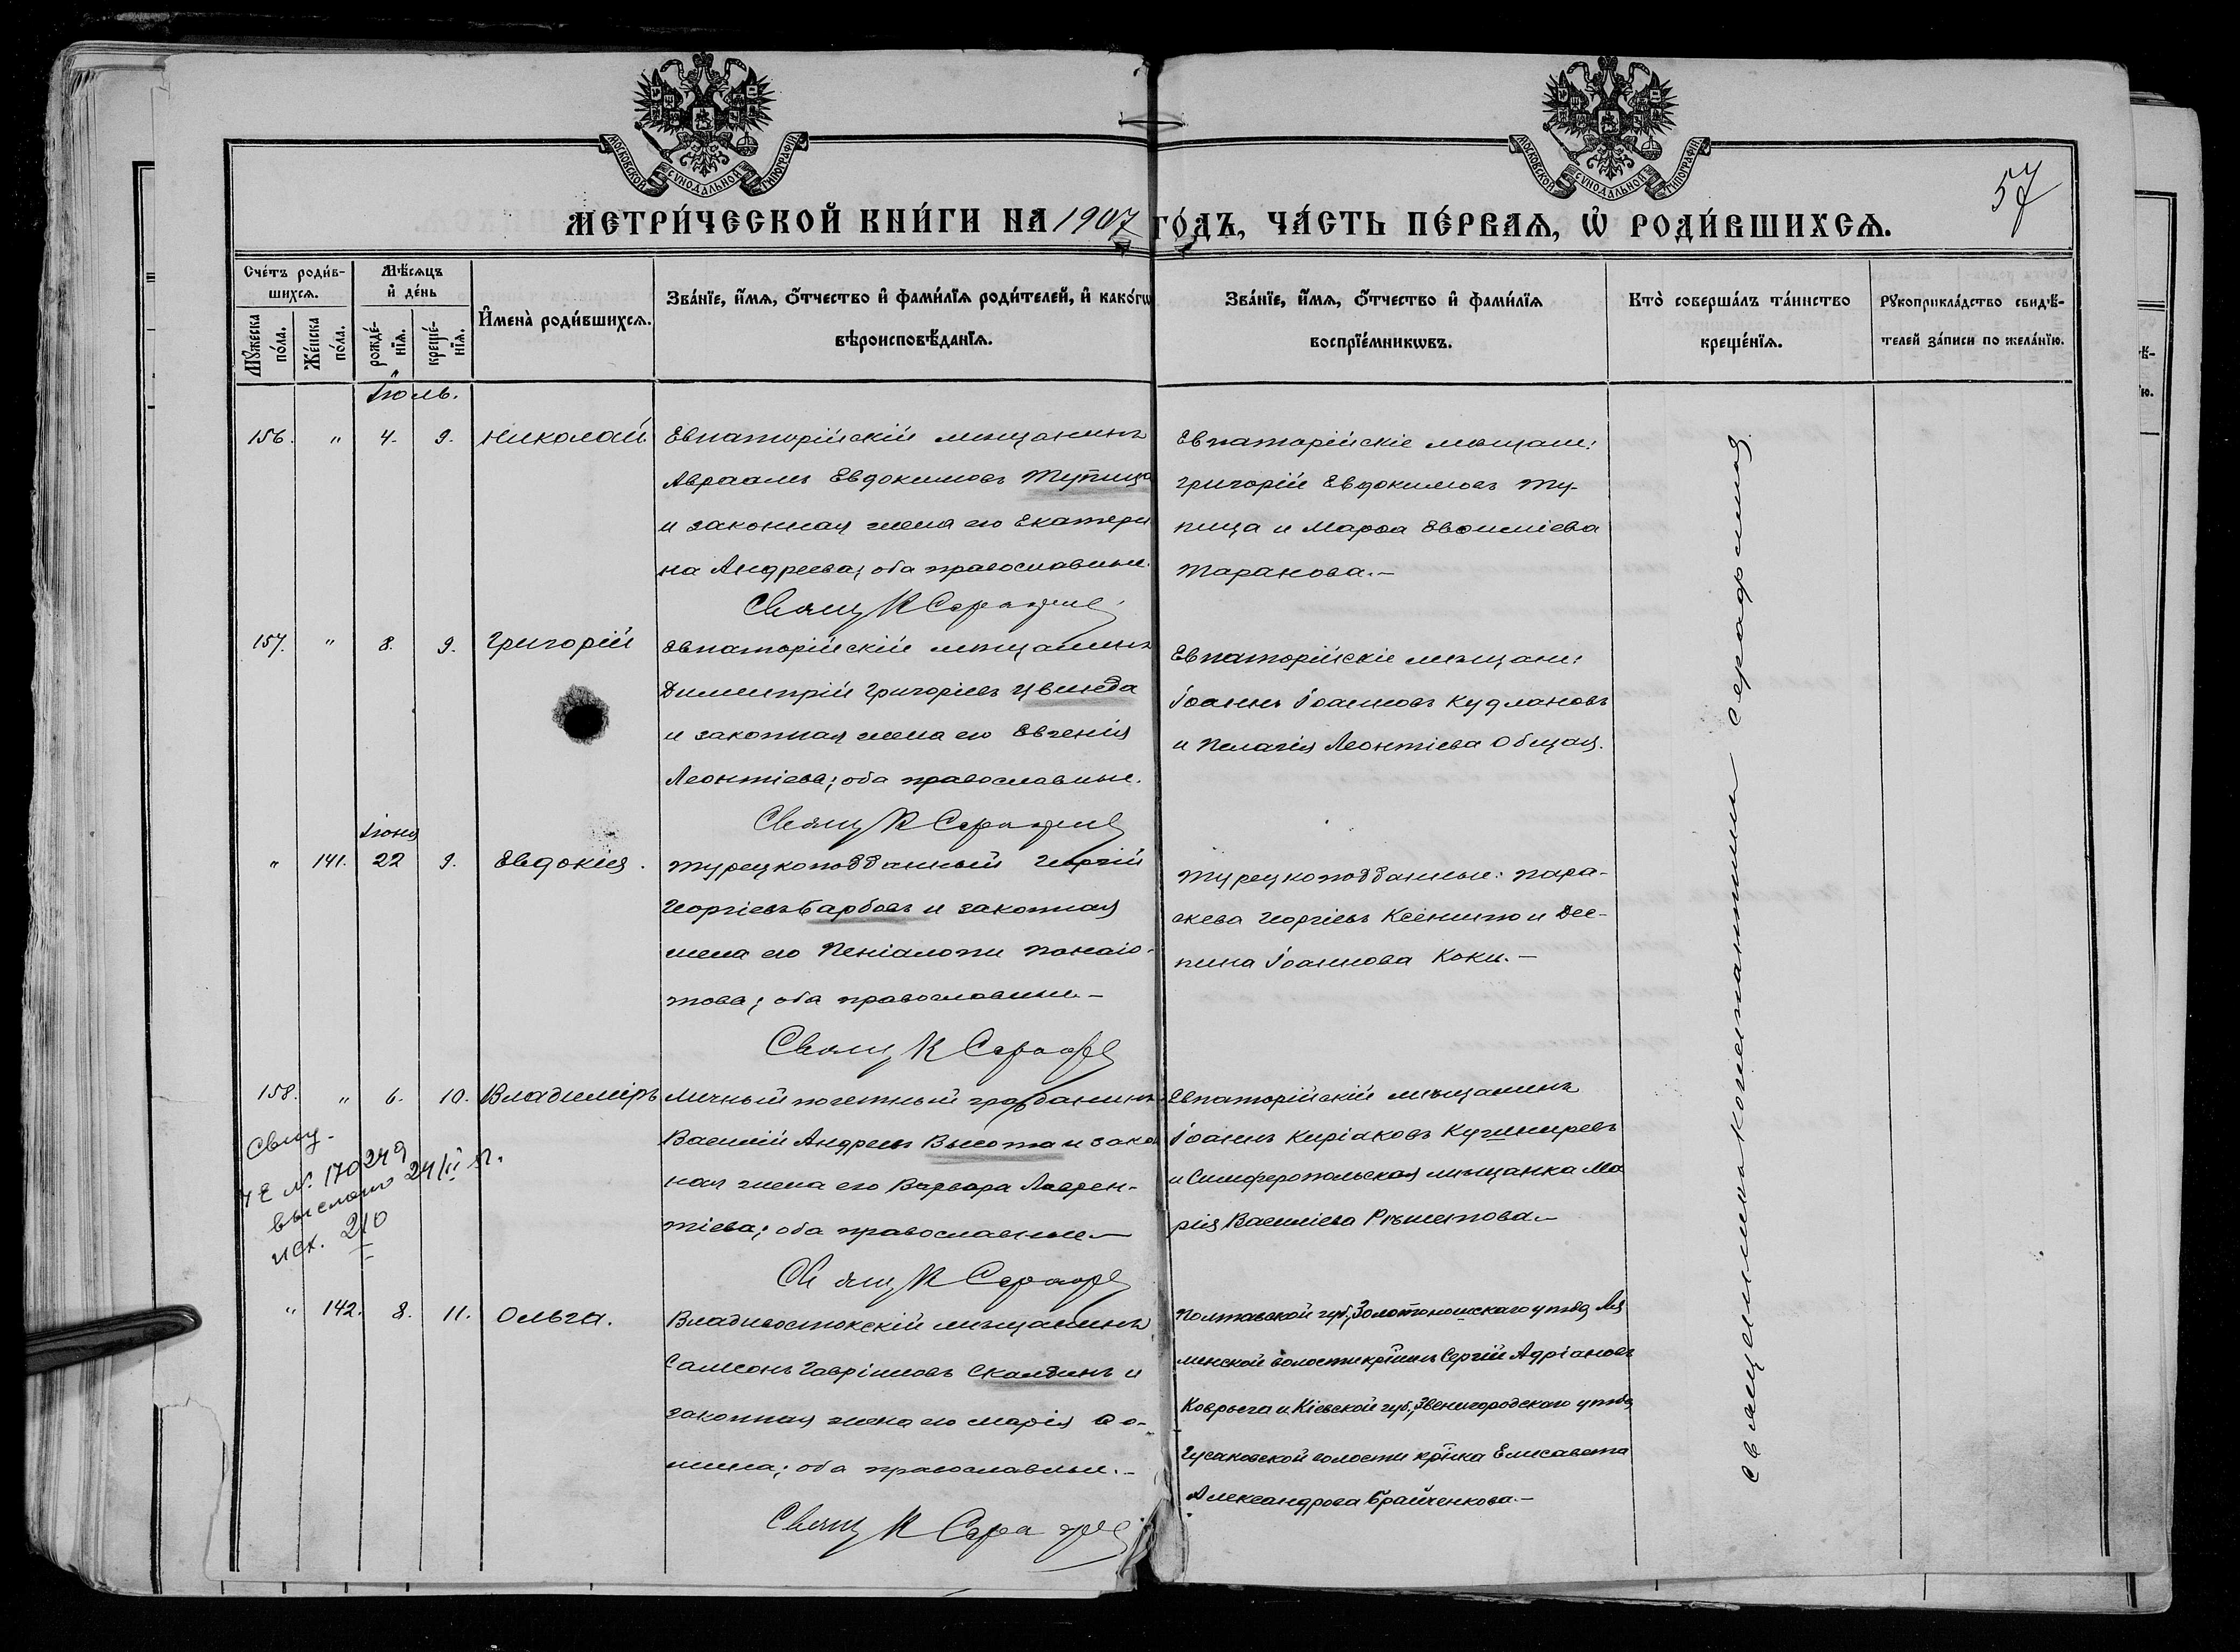 МОСКОВСКОЙ СУНОДАЛЬНОЙ ТИПОГРАФІИ
МОСКОВСКОЙ СУНОДАЛЬНОЙ ТИПОГРАФІИ
57
МЕТРИ́ЧЕСКОЙ КНИ́ГИ НА 1907 ГО́ДЪ, ЧА́СТЬ ПЕ́РВАѦ, Ѡ РОДИ́ВШИХСѦ.
Сче́тъ роди́в-
шихсѧ.
Мꙋжеска
по́ла.
Же́нска
по́ла.
Мѣ́сѧцъ
и҆ де́нь
рожде́-
нїѧ.
креще́-
нїѧ.
И҆мена̀ роди́вшихсѧ.
Зва́нїе, и҆́мѧ, ѻ҆́тчество и҆ фами́лїѧ роди́телей, и҆ како́гѡ
вѣроисповѣ́данїѧ.
Зва́нїе, и҆́мѧ, ѻ҆́тчество и҆ фами́лїѧ
воспрїе́мникѡвъ.
Кто̀ соверша́лъ та́инство
креще́нїѧ.
Рꙋкоприкла́дство свидѣ́-
телей за́писи по жела́нїю.
Іюль.
156. " 4. 9. Николай
Евпаторійскій мѣщанинъ
Авраамъ Евдокимовъ Тупица
и законная жена его Екатери
на Андреева; оба православные.
Свящ К Серафим
Евпаторійскіе мѣщане:
Григорій Евдокимовъ Ту-
пица и Марѳа Евѳиміева
Таранова.—
157. " 8. 9. Григорій
Евпаторійскій мѣщанинъ
Димитрій Григорьевъ Цвинда
и законная жена его Евгенія
Леонтіева; оба православные.
Свящ К Серафим
Евпаторійскіе мѣщане:
Іоаннъ Іоанновъ Кудлановъ
и Пелагія Леонтіева Общая.
Іюня
" 141. 22 9. Евдокія.
Турецкоподданный Георгій
Георгіевъ Барбовъ и законная
жена его Пеніалопи Панаіо-
това; оба православные.—
Свящ К Сераф
Турецкоподданные: Пара-
скева Георгіевъ Ксенито и Дес-
пина Іоаннова Коки.—
158. " 6. 10. Владиміръ
Личный почетный гражданинъ
Василій Андреевъ Высота и закон
ная жена его Варвара Лаврен-
тіева; оба православные.—
Свящ К Сераф
Евпаторійскій мѣщанинъ
Іоаннъ Киріаковъ Кучмиревъ
и Симферопольская мѣщанка Ма
рія Василіева Рѣшетова.—
Свид.
ЧЕ № 170249
выслано 24/II
исх. 210
" 142. 8. 11. Ольга.
Владивостокскій мѣщанинъ
Самсонъ Гавріиловъ Скандинъ и
законная жена его Марія Ѳо-
мина; оба православные.—
Свящ К Серафим
Полтавской губ., Золотоношскаго уѣзда Ля
линской волости кр-нинъ Сергій Адріановъ
Коврыга и Кіевской губ., Звенигородскаго уѣзда
Гусаковской волости кр-нка Елисавета
Александрова Брайченкова.—
Священникъ Константинъ Серафимовъ